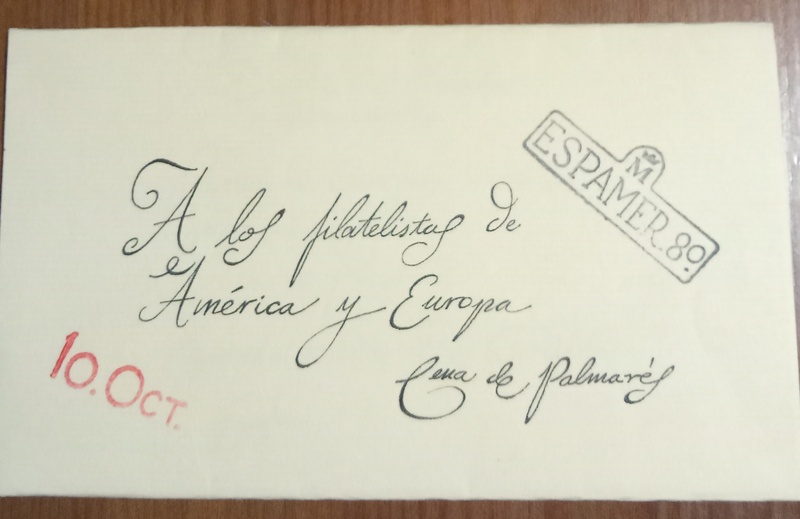 M
ESPAMER.80.
A los filatelistas de
América y Europa
Cena de Palmarés
10.OCT.